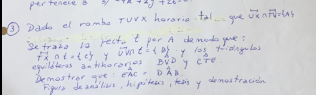 pertenece a 3) -4x + 2y + 26 =
③ Dado el rombo TUVX horario tal que UX∩TV={A}
Se traza la recta t por A de modo que:
TX ∩ t = {C} y UV∩t = {B} y los triángulos
equiláteros antihorarios BVD y CTE
Demostrar que: EAC = DAB
Figura de análisis, hipótesis, tesis y demostración